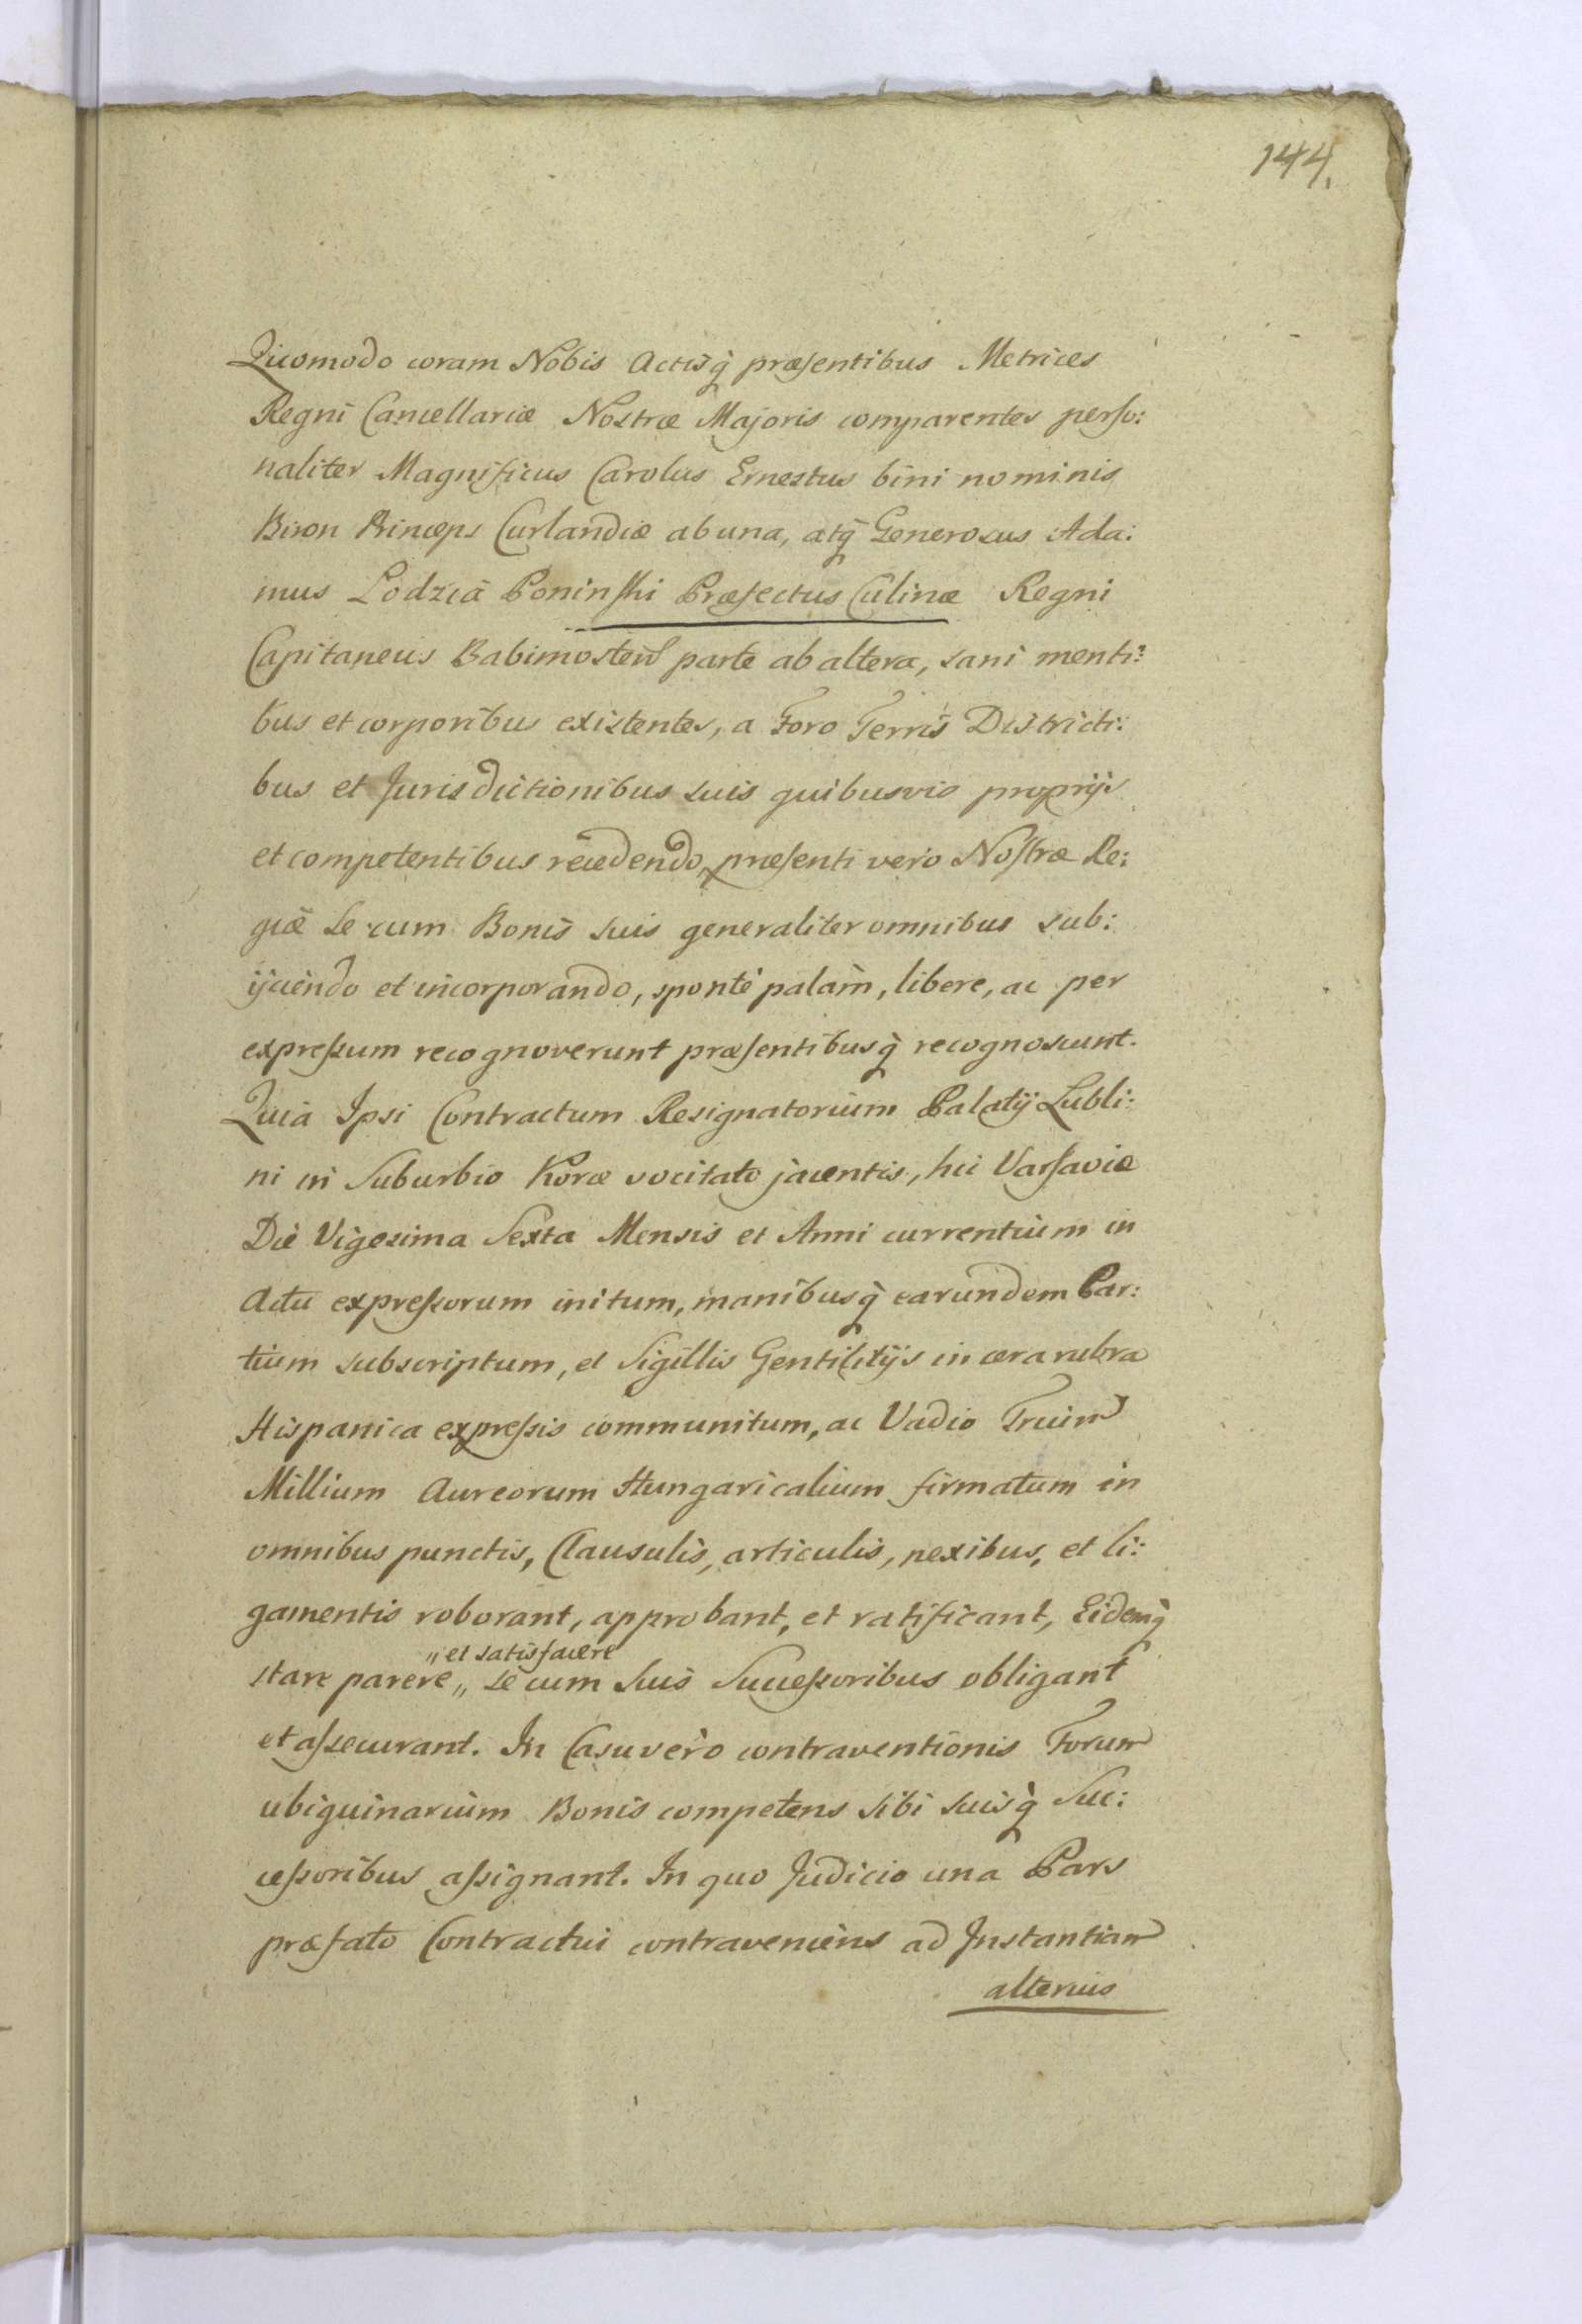 144.
Quomodo coram Nobis Actisq̀ præsentibus Metrices
Regni Cancellariæ Nostræ Majoris comparentes perso:
naliter Magnificus Carolus Ernestus bini nominis
Biron Princeps Curlandiæ ab una, atq̀ Generosus Ada:
mus Lodzia Poninski Præfectus Culinæ Regni
Capitaneus Babimosten parte ab altera, sani menti:
bus et corporibus existentes, a Foro Terris Districti:
bus et Jurisdictionibus suis quibusvis proprijs
et competentibus recedendo, præsenti vero Nostræ Re:
giæ se cum Bonis suis generaliter omnibus sub:
ijciendo et incorporando, sponte palam, libere, ac per
expressum recognoverunt præsentibusq̀ recognoscunt.
Quia Ipsi Contractum Resignatorium Palatij Lubli:
ni in Suburbio Koræ vocitato jacentis, hic Varsaviæ
Die Vigesima Sexta Mensis et Anni currentium in
Actu expressorum initum, manibusq̀ earundem Par:
tium subscriptum, et Sigillis Gentilitijs in cera rubra
Hispanica expressis communitum, ac Vadio Trium
Millium Aureorum Hungaricalium firmatum in
omnibus punctis, Clausulis, articulis, nexibus, et li:
gamentis roborant, approbant, et ratificant, Eidemq̀
„ et satisfacere
stare parere „ se cum suis Successoribus obligant
et assecurant. In Casu vero contraventionis Forum
ubiquinarium Bonis competens sibi suisq̀ Suc:
cessoribus assignant. In quo Judicio una Pars
præfato Contractui contraveniens ad Instantiam
alterius